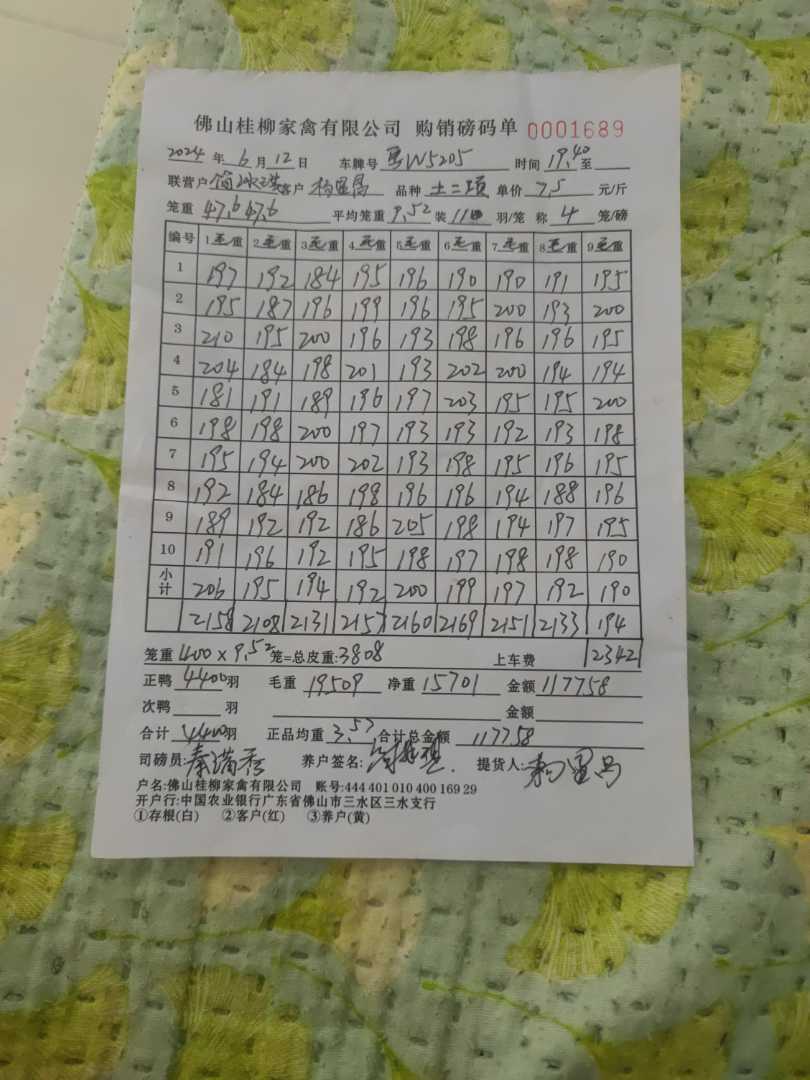 佛山桂柳家禽有限公司 购销磅码单 0001689
2024 年 6 月 12 日 车牌号 W5205 时间 19.40 至
联营户 客户 品种 土二项 单价 7.5 元/斤
笼重 47.6 47.6 平均笼重 9.52 装 11 羽/笼 称 4 笼/磅
编号 1毛/重 2毛/重 3毛/重 4毛/重 5毛/重 6毛/重 7毛/重 8毛/重 9毛/重
1 197 192 184 195 196 190 190 191 195
2 195 187 196 199 196 195 200 193 200
3 210 195 200 196 193 198 196 196 195
4 204 184 198 201 193 202 200 194 194
5 181 191 189 196 197 203 195 195 200
6 198 198 200 197 193 193 192 193 198
7 195 194 200 202 193 198 195 196 195
8 192 184 186 198 196 196 194 188 196
9 189 192 192 186 205 198 194 197 195
10 191 196 192 195 198 197 198 198 190
小计 206 195 194 192 200 199 197 192 190
2158 2108 2131 2157 2160 2169 2151 2133 194
笼重 400 × 9.52 笼=总皮重:3808 上车费 2342
正鸭 4400 羽 毛重 19509 净重 15701 金额 117758
次鸭 羽 金额
合计 4400 羽 正品均重 3.57 合计总金额 117758
司磅员: 秦满秀 养户签名: 提货人:
户名:佛山桂柳家禽有限公司 账号:444 401 010 400 169 29
开户行:中国农业银行广东省佛山市三水区三水支行
①存根(白) ②客户(红) ③养户(黄)